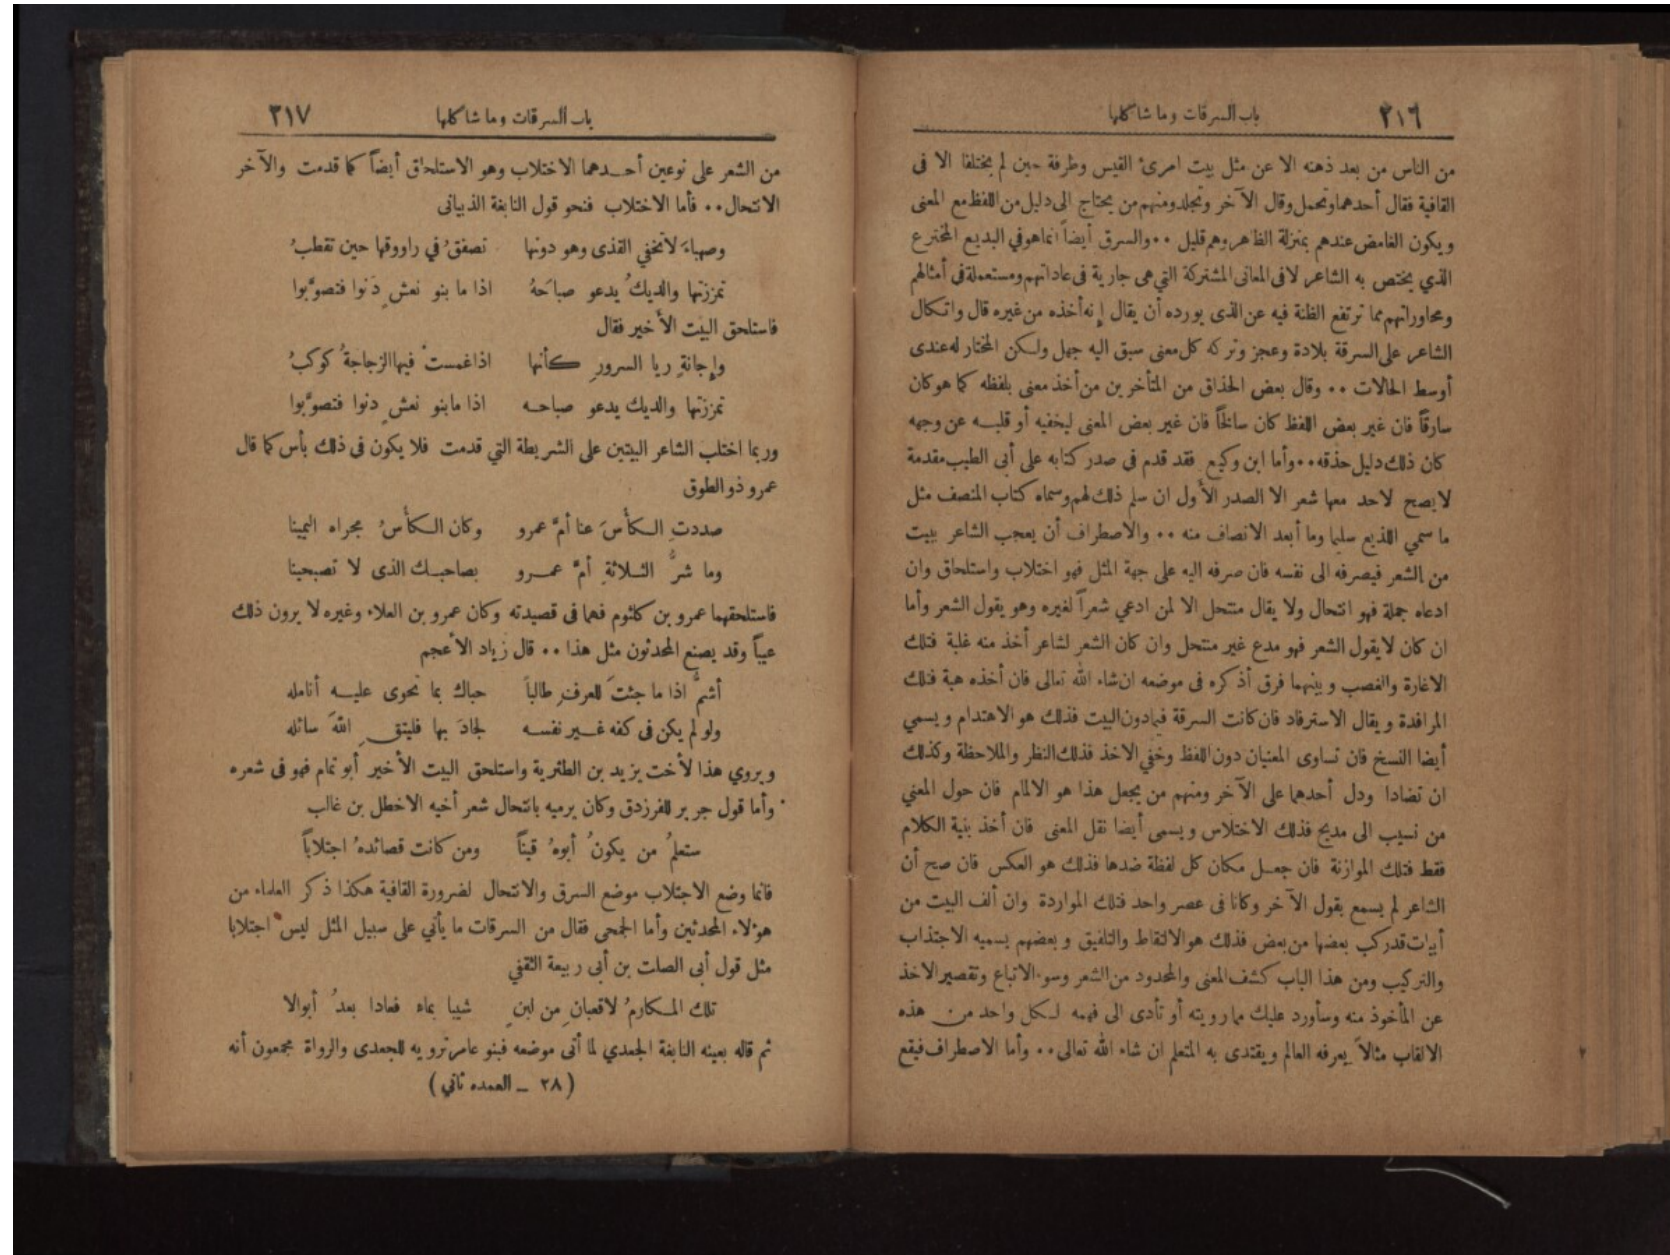 ٢١٦
باب السرقات وما شاكلها
من الناس من بعد ذهنه الا عن مثل بيت امرئ القيس وطرفة حين لم يختلفا الا فى
القافية فقال أحدهما وتحمل وقال الآخر وتجلد ومنهم من يحتاج الى دليل من اللفظ مع المعنى
ويكون الغامض عندهم بمنزلة الظاهر وهم قليل ٠٠ والسرق أيضاً انما هو في البديع المخترع
الذي يختص به الشاعر لا فى المعانى المشتركة التي هى جارية فى عاداتهم ومستعملة فى أمثالهم
ومحاوراتهم مما ترتفع الظنة فيه عن الذى يورده أن يقال إنه أخذه من غيره قال واتكال
الشاعر على السرقة بلادة وعجز وتركه كل معنى سبق اليه جهل ولكن المختار له عندى
أوسط الحالات ٠٠ وقال بعض الحذاق من المتأخرين من أخذ معنى بلفظه كما هو كان
سارقاً فان غير بعض اللفظ كان سالخاً فان غير بعض المعنى ليخفيه أو قلبه عن وجهه
كان ذلك دليل حذقه ٠٠ وأما ابن وكيع فقد قدم فى صدر كتابه على أبى الطيب مقدمة
لا يصح لاحد معها شعر الا الصدر الأول ان سلم ذلك لهم وسماه كتاب المنصف مثل
ما سمي اللذيع سليما وما أبعد الانصاف منه ٠٠ والاصطراف أن يعجب الشاعر ببيت
من الشعر فيصرفه الى نفسه فان صرفه اليه على جهة المثل فهو اختلاب واستلحاق وان
ادعاه جملة فهو انتحال ولا يقال منتحل الا لمن ادعي شعراً لغيره وهو يقول الشعر وأما
ان كان لا يقول الشعر فهو مدع غير منتحل وان كان الشعر لشاعر أخذ منه غلبة فتلك
الاغارة والغصب وبينهما فرق أذكره فى موضعه ان شاء الله تعالى فان أخذه هبة فتلك
المرافدة ويقال الاسترفاد فان كانت السرقة فيما دون البيت فذلك هو الاهتدام ويسمي
أيضا النسخ فان تساوى المعنيان دون اللفظ وخفي الاخذ فذلك النظر والملاحظة وكذلك
ان تضادا ودل أحدهما على الآخر ومنهم من يجعل هذا هو الالمام فان حول المعني
من نسيب الى مديح فذلك الاختلاس ويسمى أيضا نقل المعنى فان أخذ بنية الكلام
فقط فتلك الموازنة فان جعل مكان كل لفظة ضدها فذلك هو العكس فان صح أن
الشاعر لم يسمع بقول الآخر وكانا فى عصر واحد فتلك المواردة وان ألف البيت من
أبيات قد ركب بعضها من بعض فذلك هو الالتقاط والتلفيق وبعضهم يسميه الاجتذاب
والتركيب ومن هذا الباب كشف المعنى والمحدود من الشعر وسوء الاتباع وتقصير الاخذ
عن المأخوذ منه وسأورد عليك مما رويته أو تأدى الى فهمه لكل واحد من هذه
الالقاب مثالاً يعرفه العالم ويقتدى به المتعلم ان شاء الله تعالى ٠٠ وأما الاصطراف فيقع
باب السرقات وما شاكلها
٢١٧
من الشعر على نوعين أحدهما الاختلاب وهو الاستلحاق أيضاً كما قدمت والآخر
الانتحال ٠٠ فأما الاختلاب فنحو قول النابغة الذبيانى
وصهباءَ لا تخفي القذى وهو دونها تصفقُ في راووقها حين تقطبُ
تمززتها والديكُ يدعو صباحَهُ اذا ما بنو نعشٍ دَنوا فتصوَّبوا
فاستلحق البيت الأخير فقال
وإجانةٍ ريا السرورِ كأنها اذا غمستْ فيها الزجاجةُ كوكبُ
تمززتها والديك يدعو صباحه اذا ما بنو نعشٍ دنوا فتصوَّبوا
وربما اختلب الشاعر البيتين على الشريطة التي قدمت فلا يكون فى ذلك بأس كما قال
عمرو ذو الطوق
صددتِ الكأسَ عنا أمَّ عمرو وكان الكأسُ مجراه اليمينا
وما شرُّ الثلاثةِ أمَّ عمرو بصاحبك الذى لا تصبحينا
فاستلحقهما عمرو بن كلثوم فهما فى قصيدته وكان عمرو بن العلاء وغيره لا يرون ذلك
عيباً وقد يصنع المحدثون مثل هذا ٠٠ قال زياد الأعجم
أشمُّ اذا ما جئتَ للعرفِ طالباً حباك بما تحوى عليه أنامله
ولو لم يكن فى كفه غير نفسه لجادَ بها فليتقِ اللهَ سائله
ويروي هذا لأخت يزيد بن الطثرية واستلحق البيت الأخير أبو تمام فهو فى شعره
وأما قول جرير للفرزدق وكان يرميه بانتحال شعر أخيه الاخطل بن غالب
ستعلمُ من يكونُ أبوهُ قيناً ومن كانت قصائدهُ اجتلاباً
فانما وضع الاجتلاب موضع السرق والانتحال لضرورة القافية هكذا ذكر العلماء من
هؤلاء المحدثين وأما الجمحى فقال من السرقات ما يأتي على سبيل المثل ليس اجتلابا
مثل قول أبى الصلت بن أبى ربيعة الثقفي
تلك المكارمُ لا قعبانِ من لبنٍ شيبا بماء فعادا بعدُ أبوالا
ثم قاله بعينه النابغة الجعدي لما أتى موضعه فبنو عامر ترويه للجعدى والرواة مجمعون أنه
(٢٨ ــ العمده ثاني)